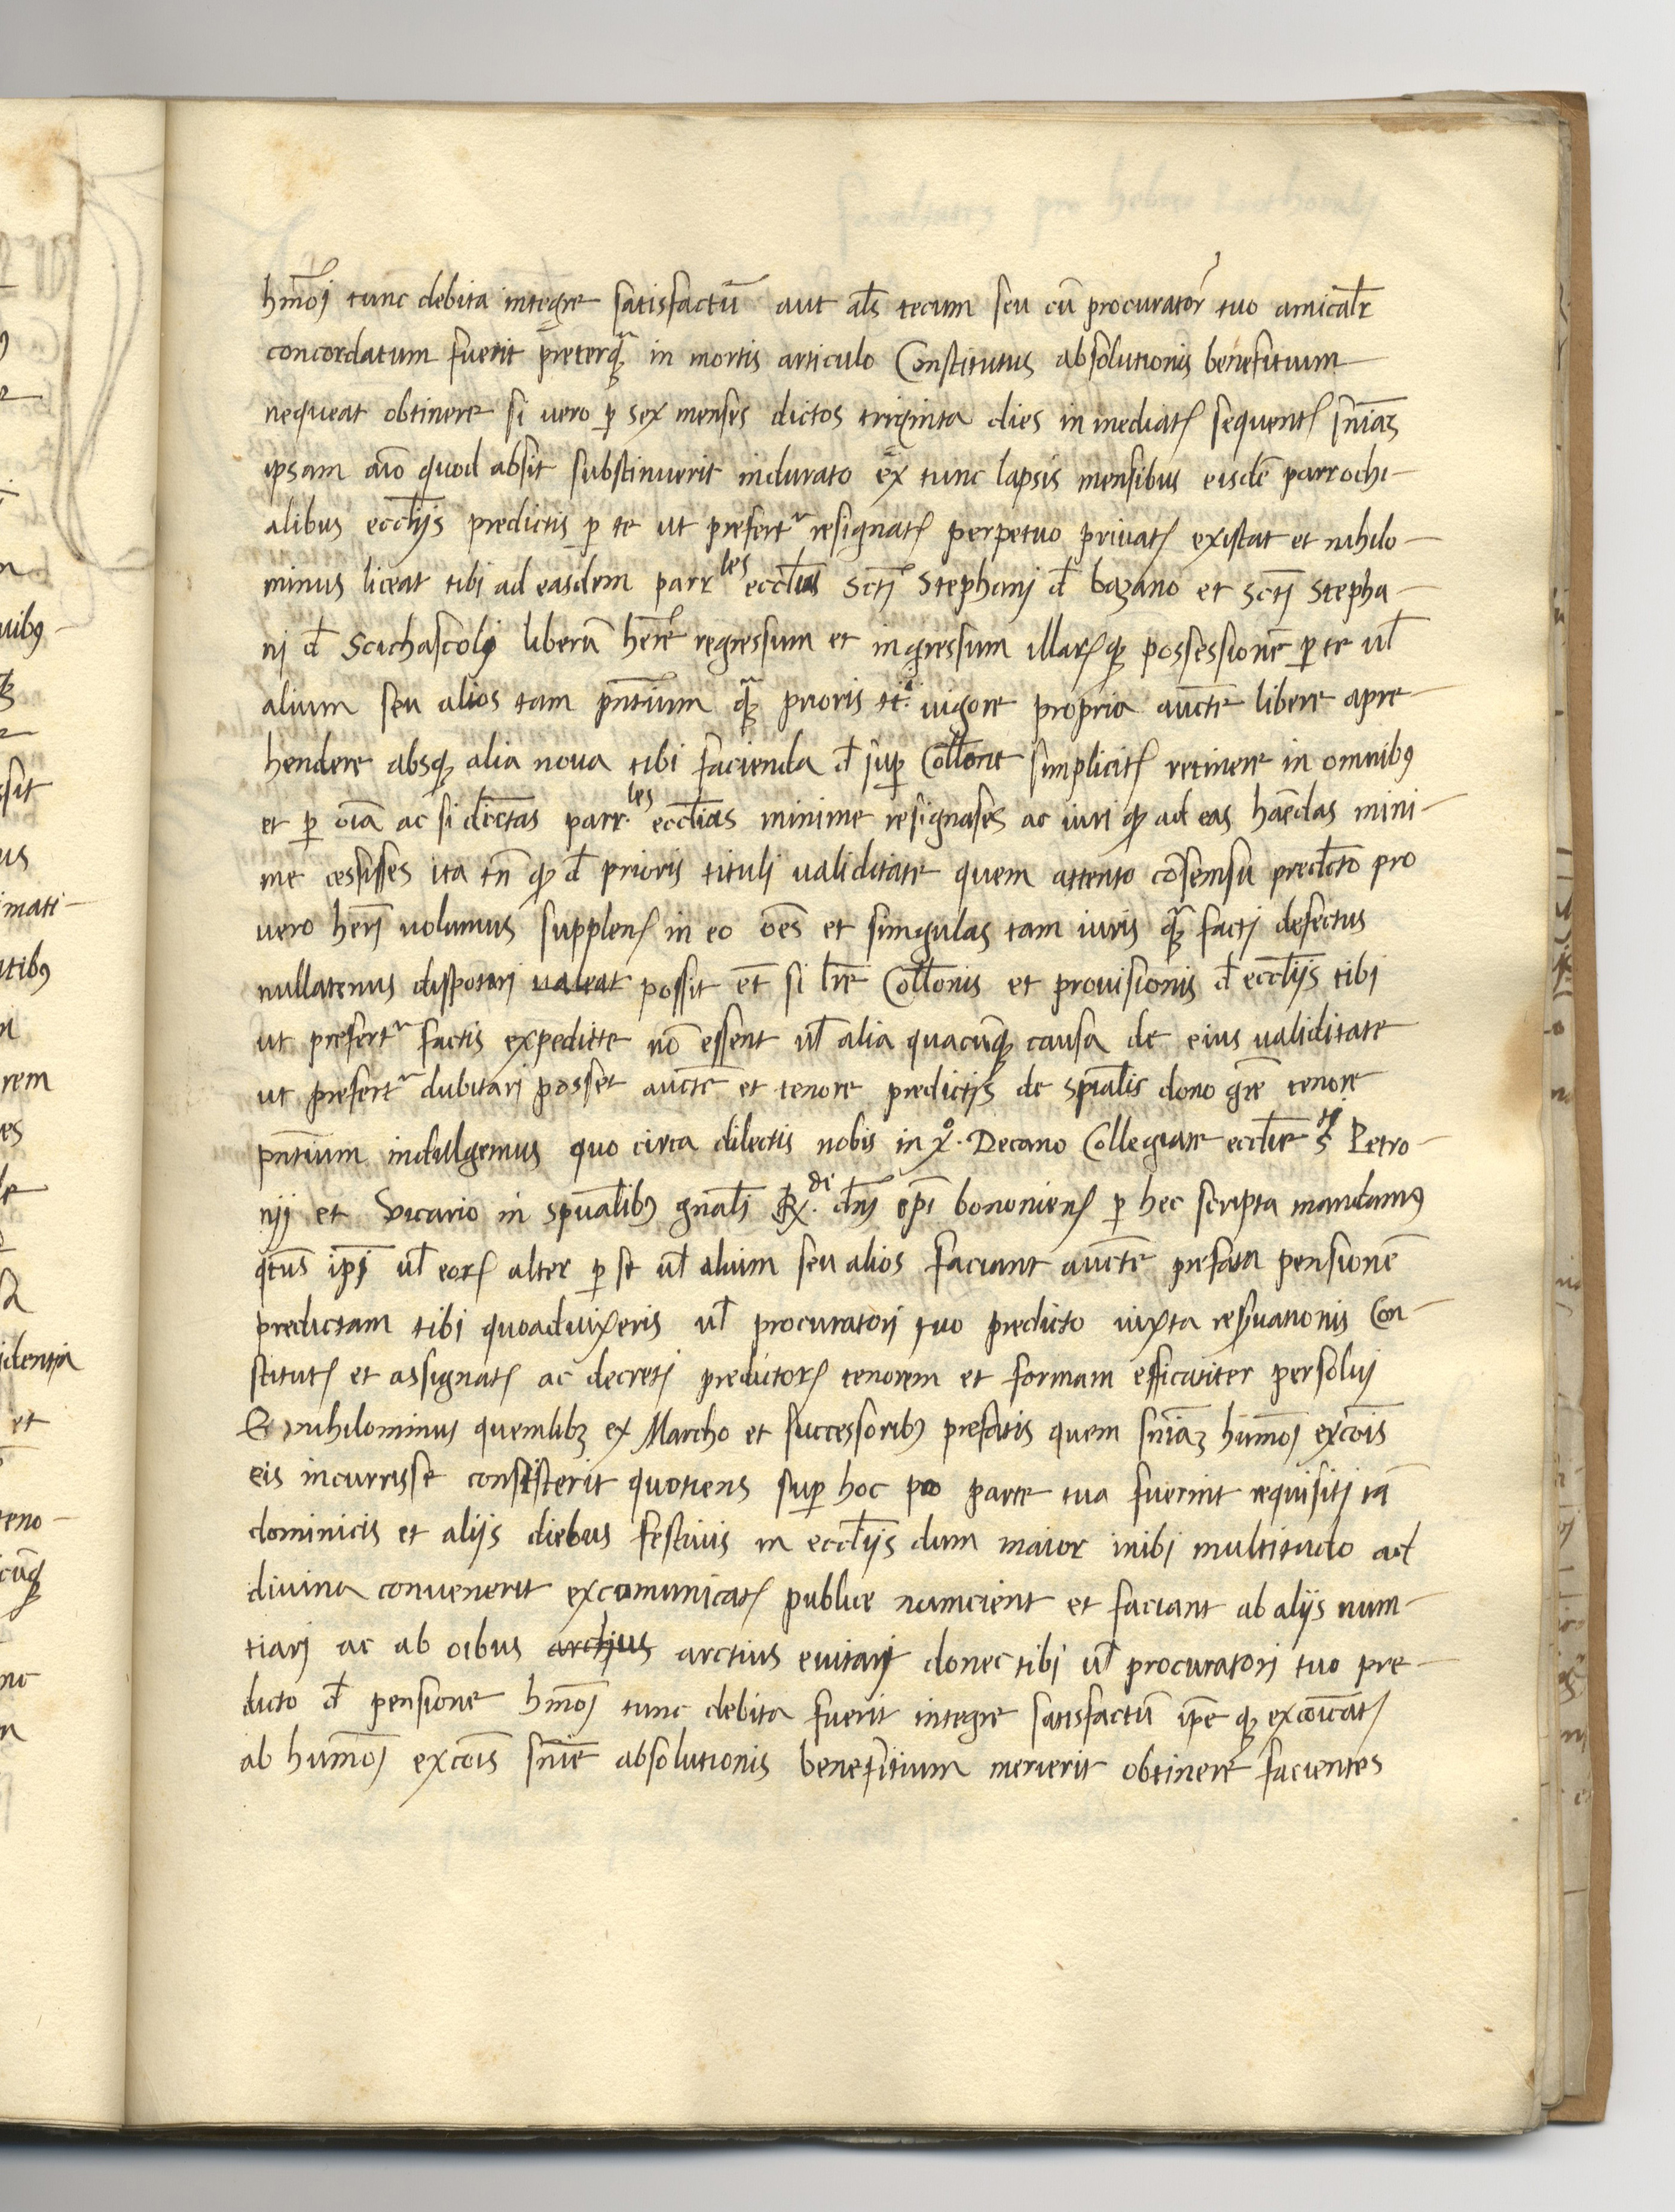 hmõj tunc debita integre satisfactũ aut als tecum seu cũ procurator tuo amicalr
concordatum fuerit preterq̃ in mortis articulo Constitutus absolutionis benefitium
nequeat obtinere si vero p sex menses dictos triginta dies in mediat sequent sñiaz
ipsam aĩo quod absit substinuerit indurato ex tunc lapsis mensibus eisdẽ parrochi-
alibus eccliis predictis p te ut prefert resignat perpetuo privat existat et nihilo-
minus liceat tibi ad easdem parrles ecclias Sctj Stephanj đ bazano et Sctj Stepha-
nj đ Scichascolj liberũ hẽre regressum et ingressum illar q possessionẽ p te vl
alium seu alios tam pñtium q̃ prioris tt. vigore propria auctte libere apre-
hendere absq alia nova tibi facienda đ sup Collone simplicit retinere in omnibus
et p oĩa ac si dictas parr.les ecclias minime resignases ac iuri q ad eas hãedas mini-
me cessisses ita tñ q đ prioris tituli validitate quem attento cõsensu predicto pro
vero herj volumus supplen in eo oẽs et singulas tam iuris q̃ factj defectus
nullatenus dispotari valeat possit et̃ si lre Collonis et provisionis đ eccliis tibi
ut prefert factis expedicte nõ essent vl alia quacũq causa de eius validitate
ut prefert dubitari posset auctte et tenore predictis de spialis dono gre tenore
pñtium indullgemus quo circa dilectis nobis in xº. Decano Collegiate ecclie S.ti Petro-
nij et Vicario in spualibus gnali R.di dñj epi bononien p hec scripta mandamus
qtus ipsi vl eor alter p se vl alium seu alios faciant auctte prefata pensionẽ
predictam tibi quoadvixeris vl procuratorj tuo predicto iuxta reservationis Con-
stitut et assignat ac decretj predictor tenorem et formam efficatiter persolvj
Et nihilominus quemlibz ex Marcho et successoribus prefatis quem sñiaz humõj excõis
eis incurrisse constiterit quotiens sup hoc po parte tua fuerint requisitj tã
dominicis et aliis diebus festivis in eccliis dum maior inibi multitudo ad
divina convenerit excomunicat publice numcient et faciant ab aliis num-
tiarj ac ab oibus arctius arctius evitarj donec tibi vl procuratorj tuo pre-
dicto đ pensione hmõj tunc debita fuerit integre satisfactũ ipe q excõicat
ab humõj excõis sñie absolutionis benefitium meruerit obtinere facientes